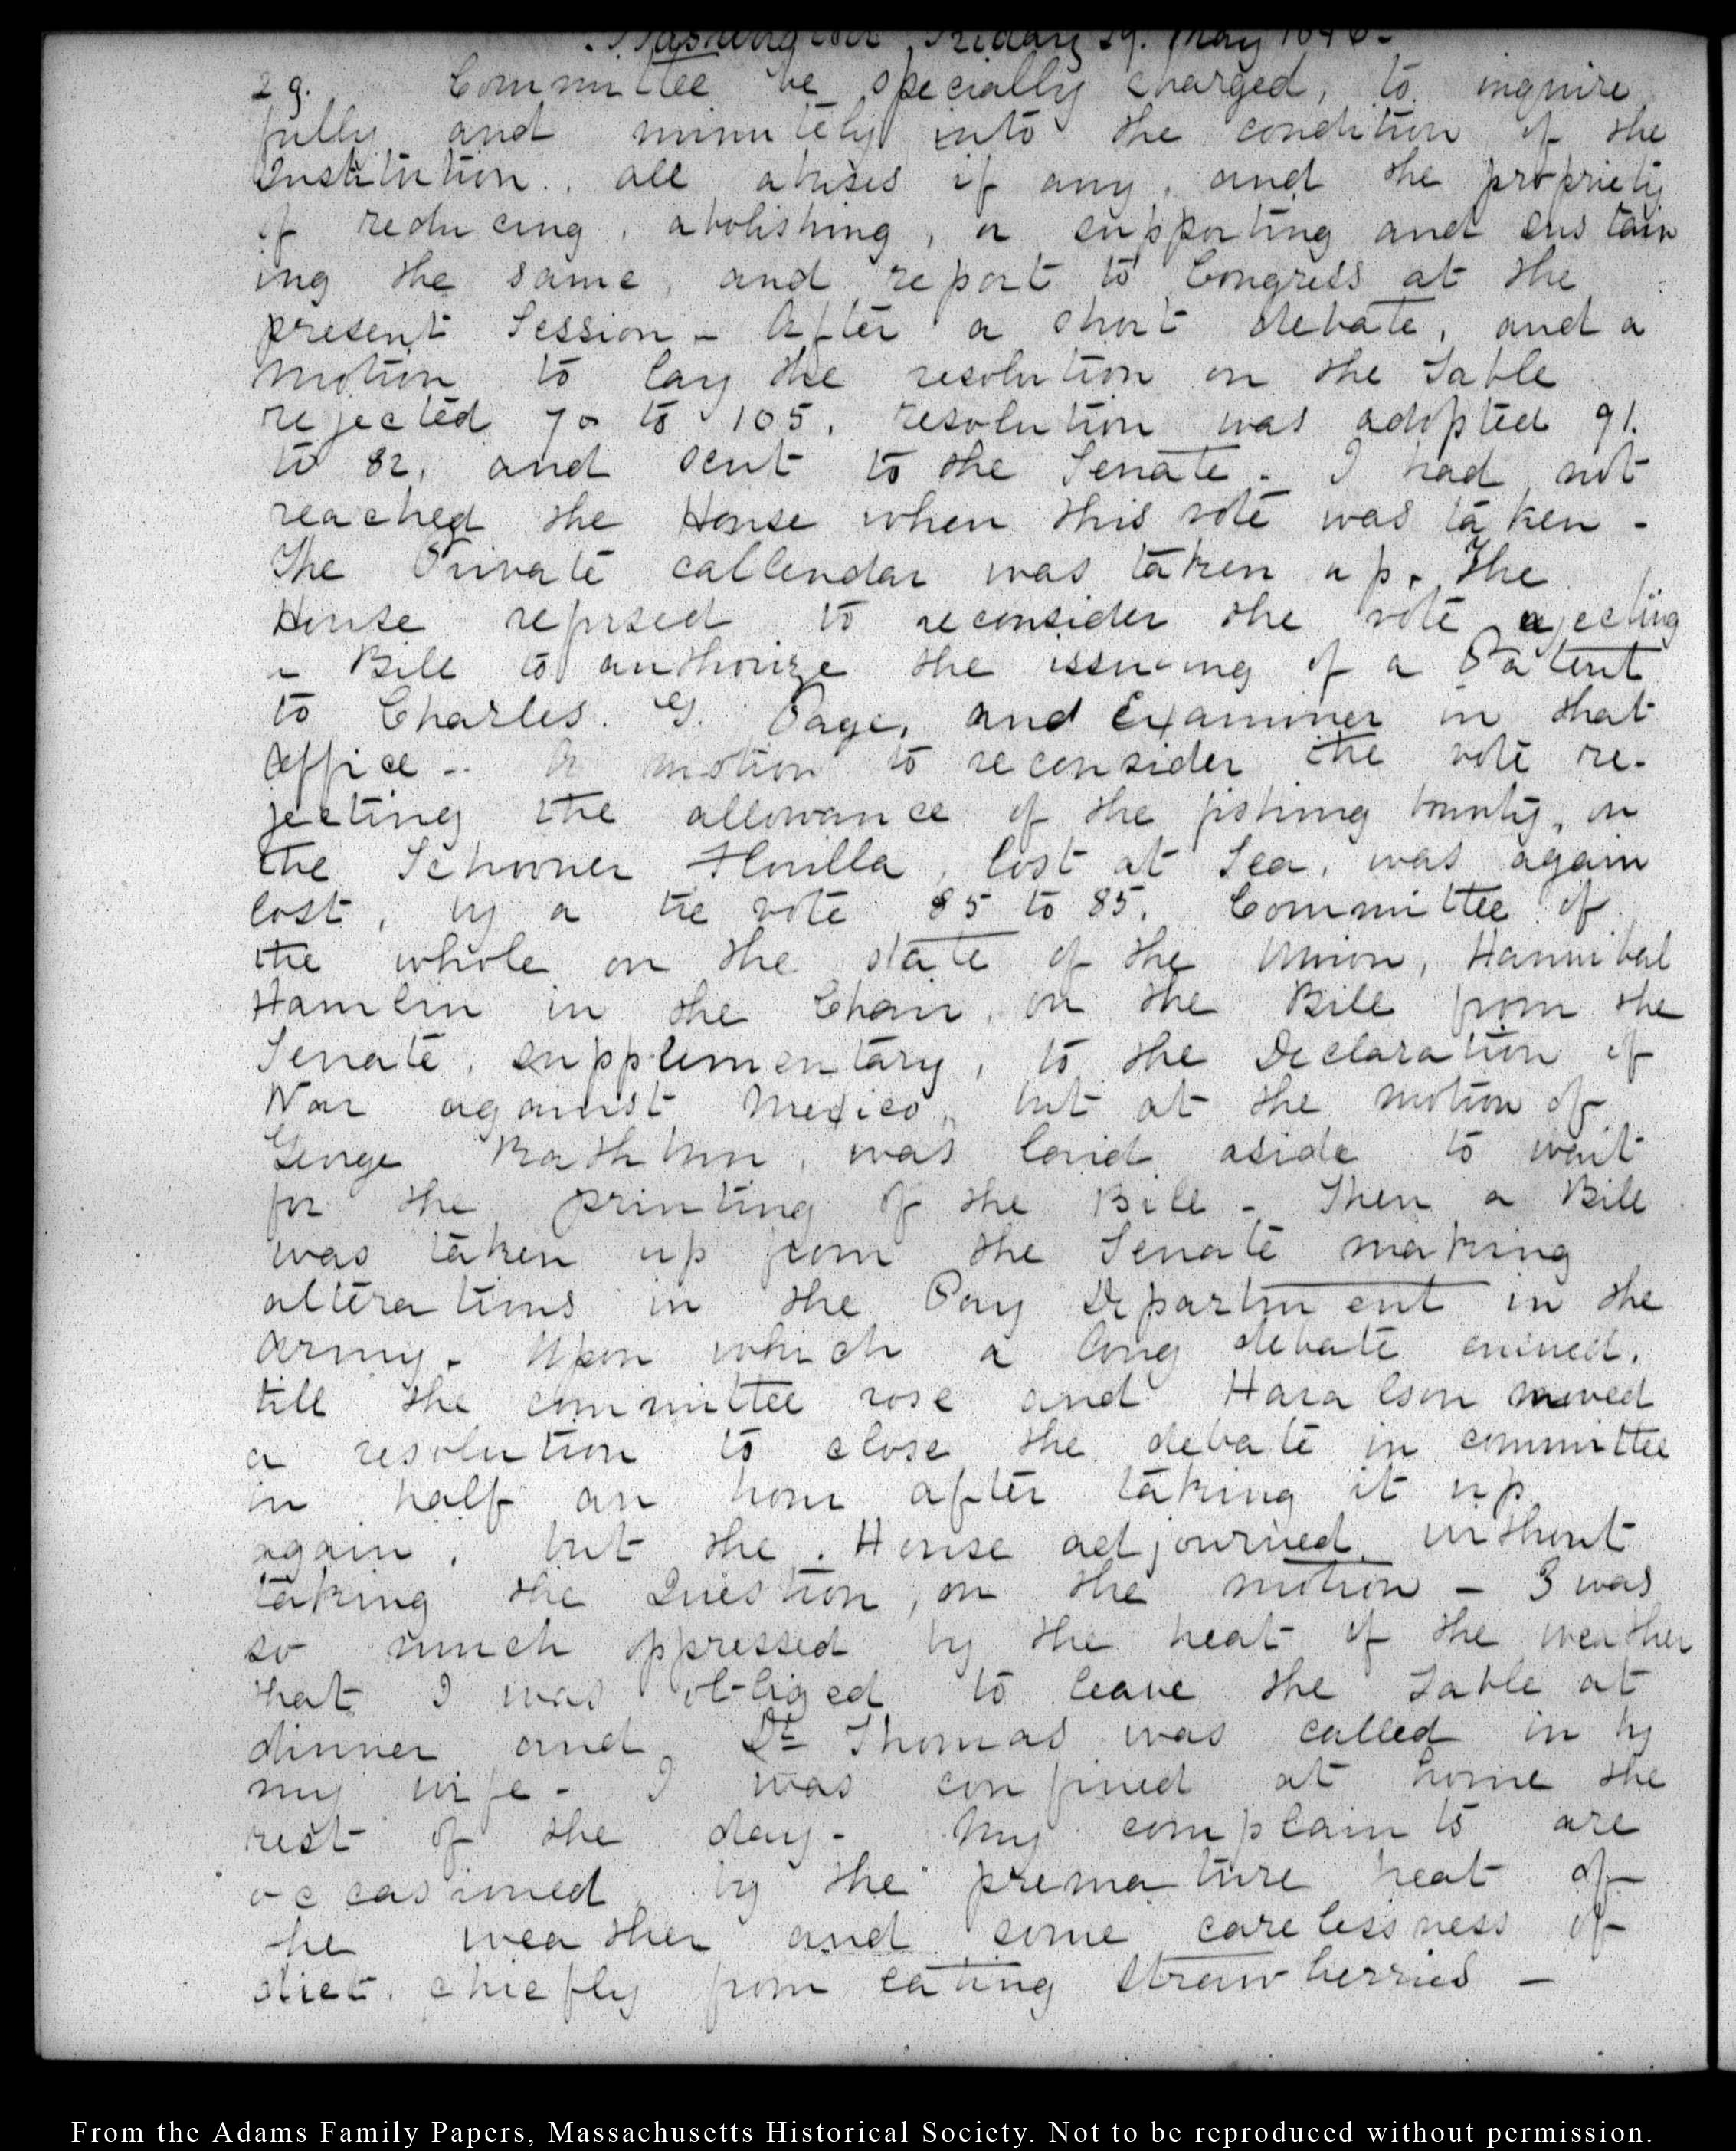 Washington Friday 29. May 1846-
29. Committee be specially charged, to inquire
fully and minutely into the condition of the
Institution., all abuses if any, and the propriety
of reducing, abolishing, or supporting and sustain
ing the same, and report to Congress at the
present Session - After a short debate, and a
motion to lay the resolution on the Table
rejected 70 to 105, resolution was adopted 91.
to 82, and sent to the Senate - I had not
reached the House when this vote was taken -
The Private callendar was taken up. The
House refused to reconsider the vote rejecting
a Bill to authorize the issuing of a Patent
to Charles. G. Page, and Examiner in that
Office - A motion to reconsider the vote re-
jecting the allowance of the fishing bounty, on
the Schooner Florilla, lost at Sea, was again
lost, by a tie vote 85 to 85. Committee of
the whole on the state of the Union, Hannibal
Hamlin in the Chair, on the Bill from the
Senate, supplementary, to the Declaration of
War against Mexico, but at the motion of
George Rathbun, was laid aside to wait
for the printing of the Bill - Then a Bill
was taken up from the Senate making
alterations in the Pay Department in the
Army - Upon which a long debate ensued,
till the committee rose and Haralson moved
a resolution to close the debate in committee
in half an hour after taking it up
again, but the House adjourned without
taking the Question, on the motion - I was
so much oppressed by the heat of the weather
that I was obliged to leave the Table at
dinner and Dr Thomas was called in by
my wife - I was confined at home the
rest of the day - My complaints are
occasioned by the premature heat of
the weather and some carelessness of
diet. chiefly from eating strawberries -
From the Adams Family Papers, Massachusetts Historical Society. Not to be reproduced without permission.